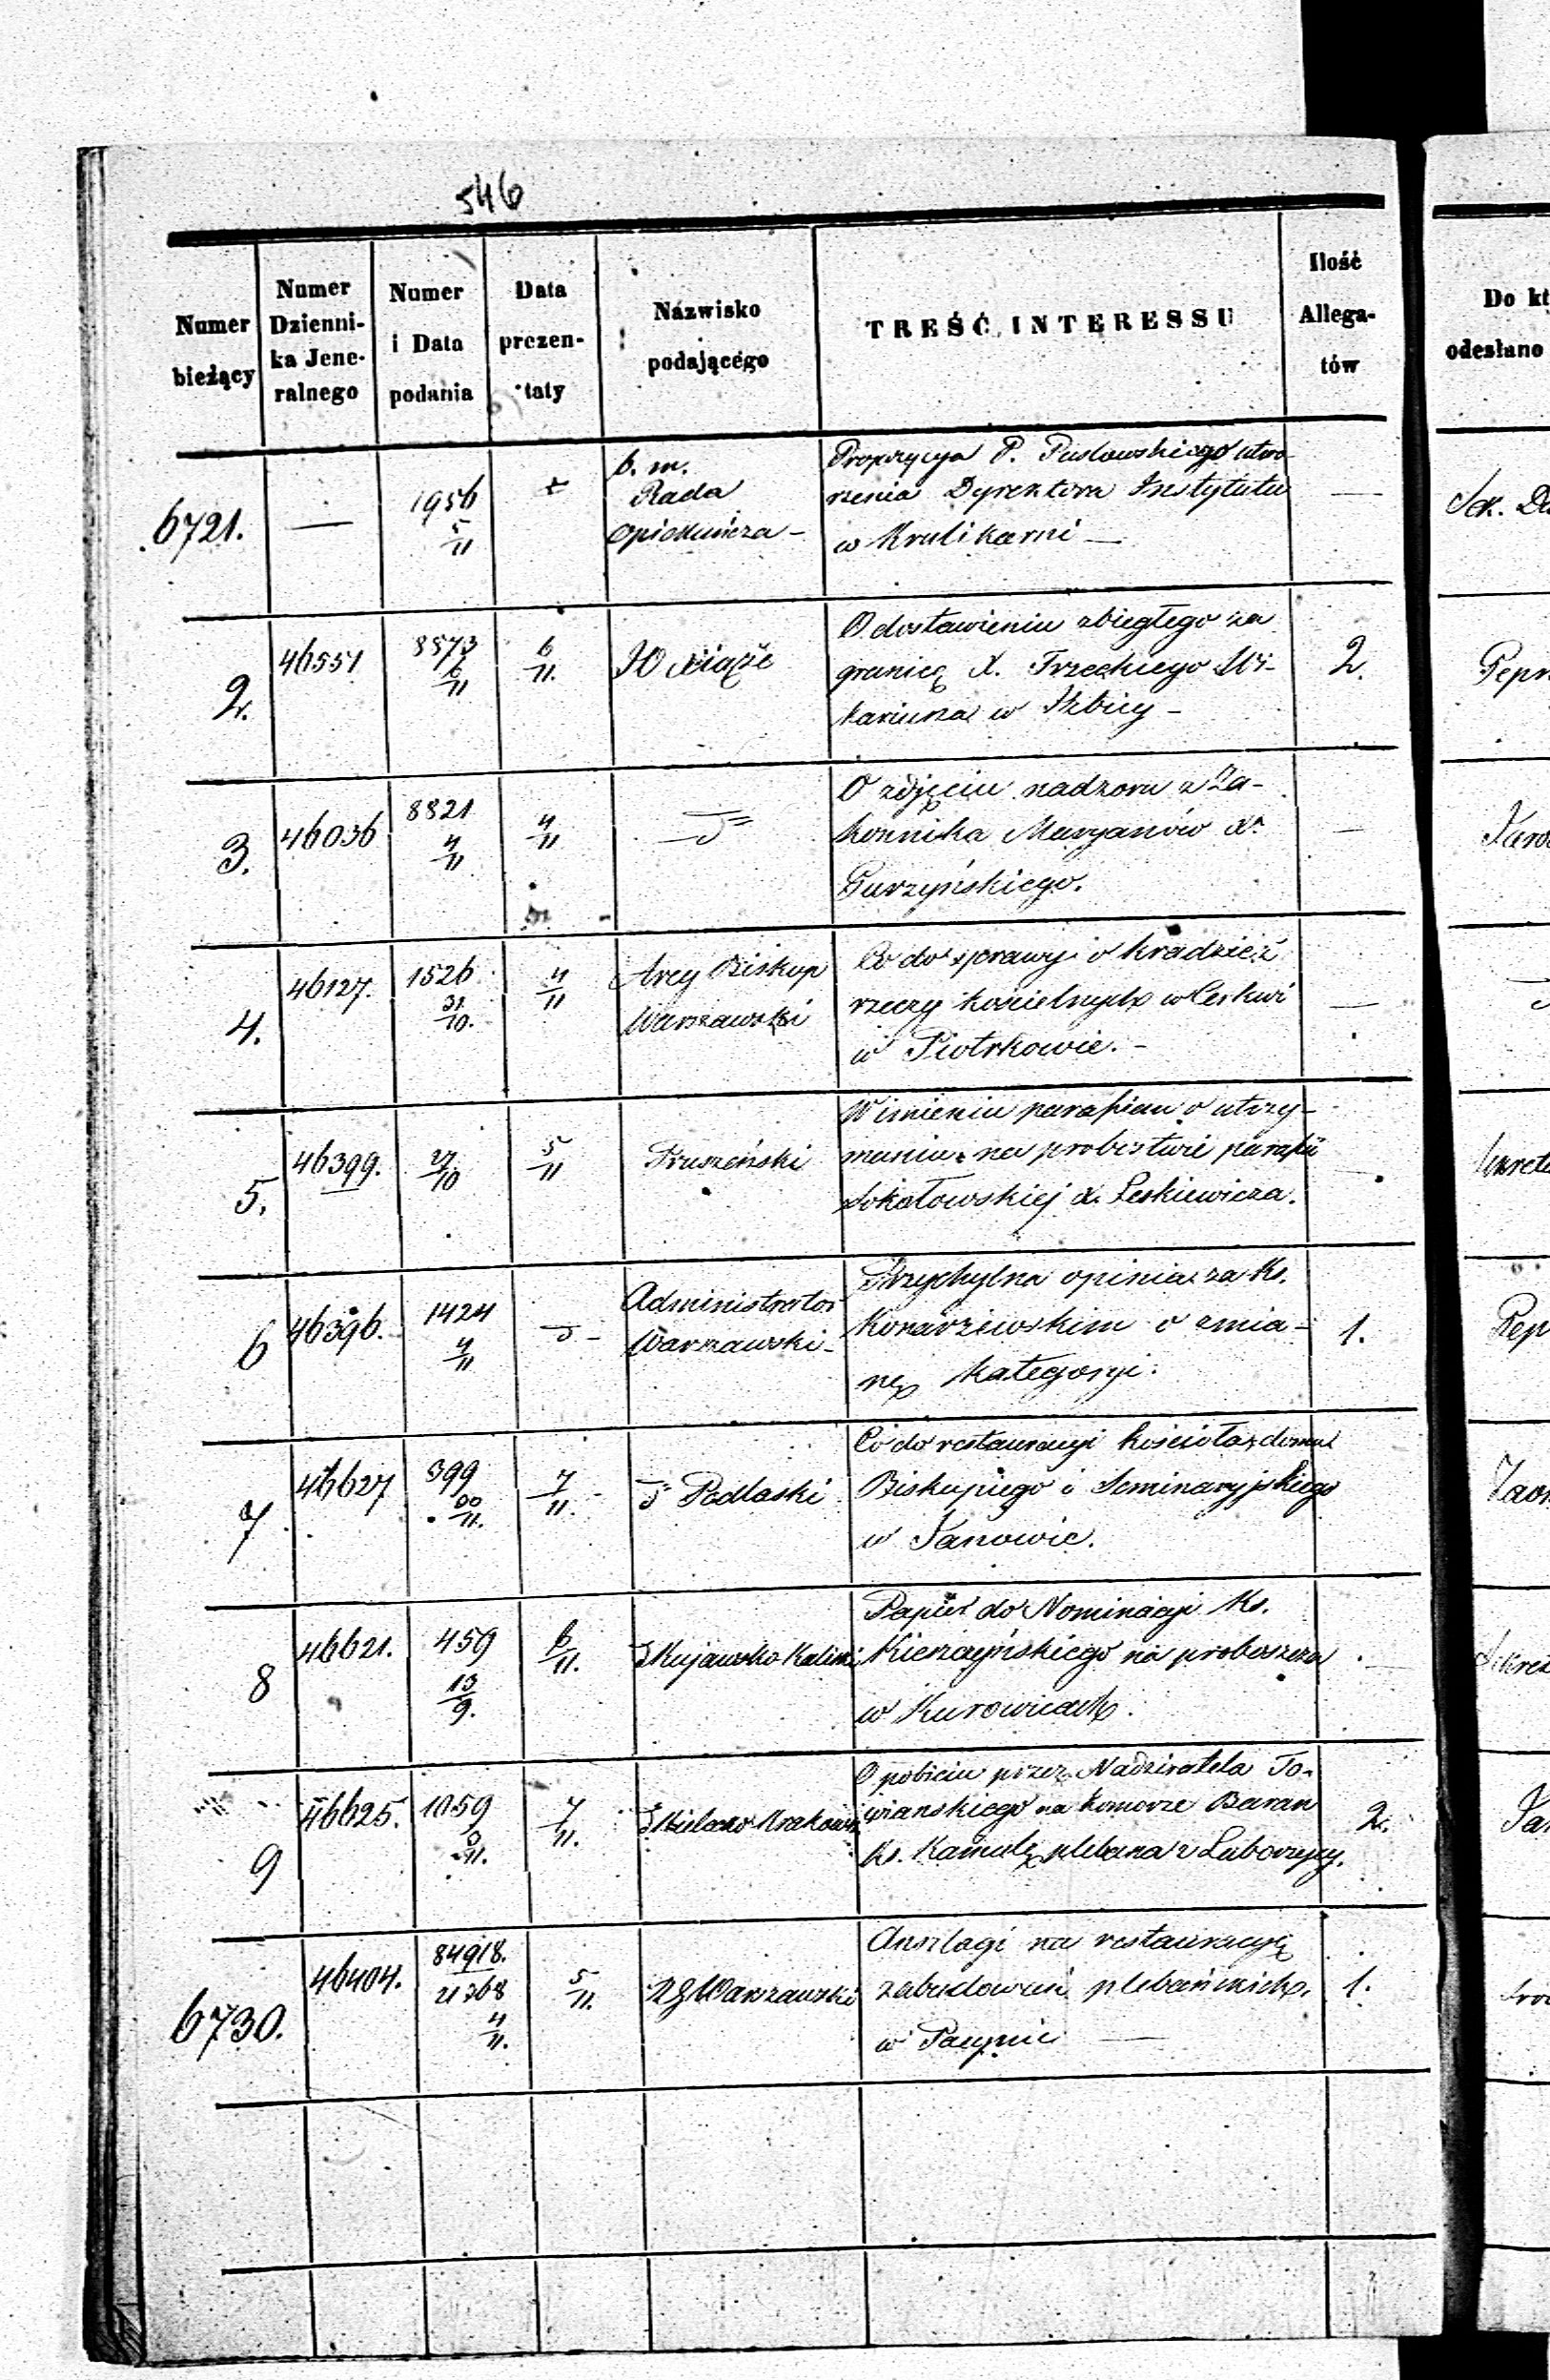 546
Numer bieżący
Numer Dzienni-
ka Jene-
ralnego
Numer
i Data
podania
Data
prezen-
taty
Nazwisko
podającego
TREŚĆ INTERESSU
Ilość
Allega-
tów
Do kt
odesłano
6721.
—
1956
5/11
b. m.
Rada
Opiekuńcza –
Propozycya P. Pusłowskiego utwo-
rzenia Dyrektora Instytutu
w Krulikarni —
—
2.
46551
8573
6/11
6/11.
JO Xiąże
O dostawieniu zbiegłego za
granicę X. Trzeckiego Wi-
kariusza w Izbicy –
2.
Repr
3.
46036
8821
4/11
4/11
O zdjęciu nadzoru z Za-
konnika Maryanów X.
Gurzyńskiego.
—
4.
46127.
1526
31/10.
4/11
Arcy Biskup
Warszawski
Co do sprawy o kradzież
rzeczy kościelnych w Cerkwi
w Piotrkowie. –
—
5.
46399.
27/10
5/11
Truszeński
W imieniu parafian o utrzy-
mania na probostwie parafii
Sokołowskiej X. Leskiewicza.
6
46396.
1424
4/11
Administrator
Warszawski –
Przychylna opinia za Ks.
Konarzewskim o zmia-
nę kategoryi.
1.
Rep
7
46627
399
7/11.
Podlaski
Co do restauracyi kościoła, domu
Biskupiego i Seminaryjskiego
w Janowie.
8
46621.
459
13/9.
6/11.
Kujawsko Kaliski
Papier do Nominacyi Ks.
Kieszczyńskiego na proboszcza
w Kurowicach.
9
46625.
1059
7/11.
Kielecko Krakowski
O pobiciu przez Nadziratela To-
wianskiego na komorze Baran
Ks. Kamulę plebana z Luborzycy.
2.
6730.
46404.
84918.
21368
4/11.
5/11.
RG Warszawski
Anszlagi na restauracyę
zabudowań plebańskich
w Pacynie —
1.